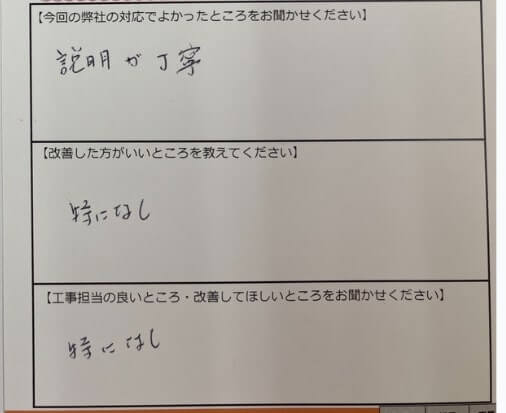 【今回の弊社の対応でよかったところをお聞かせください】
説明が丁寧
【改善した方がいいところを教えてください】
特になし
【工事担当の良いところ・改善してほしいところをお聞かせください】
特になし